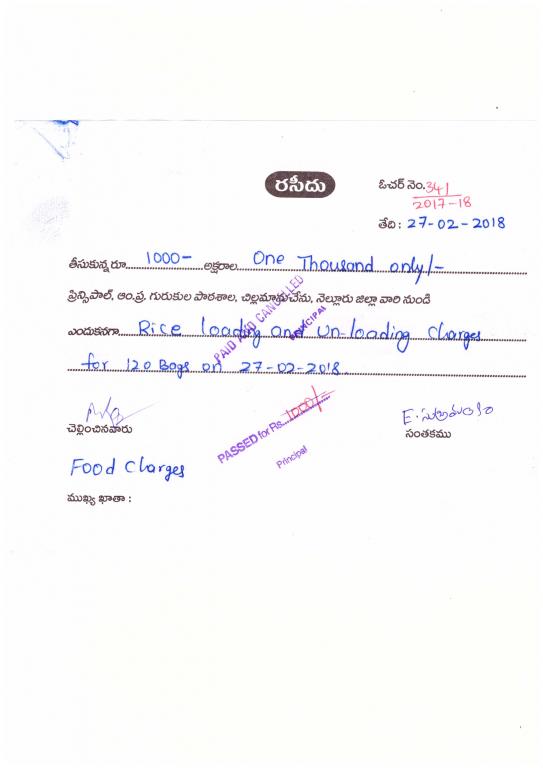 రసీదు
ఓచర్ నెం. 341
2017-18
తేది : 27-02-2018
తీసుకున్నరూ 1000- అక్షరాల One Thousand only/-
ప్రిన్సిపాల్, ఆం.ప్ర. గురుకుల పాఠశాల, చిల్లమానుచేను, నెల్లూరు జిల్లా వారి నుండి
ఎందుకనగా Rice loading and Un-loading Charges
for 120 Bags on 27-02-2018
PAID AND CANCELLED
PRINCIPAL
PASSED for Rs. 1000/-
Principal
చెల్లించినవారు
సంతకము
Food Charges
ముఖ్య ఖాతా :